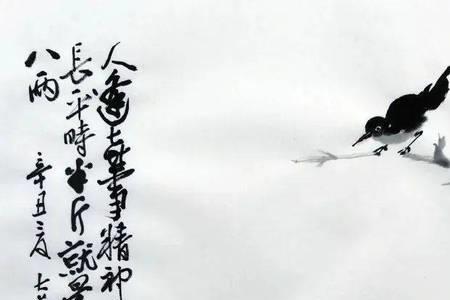 人逢喜事精神
長平時半斤就是
八兩
辛丑